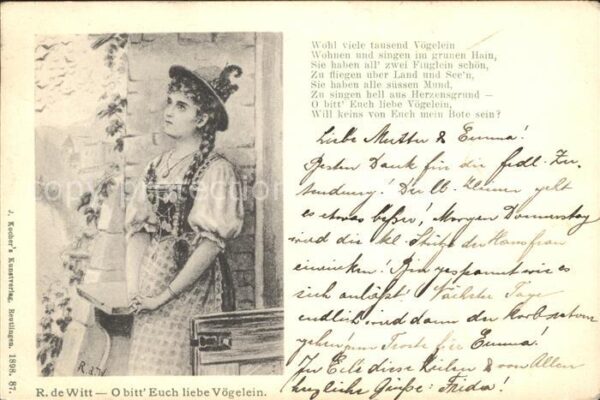 Wohl viele tausend Vögelein
Wohnen und singen im grunen Hain,
Sie haben all' zwei Fluglein schön,
Zu fliegen uber Land und See'n,
Sie haben alle süssen Mund,
Zu singen hell aus Herzensgrund —
O bitt' Euch liebe Vögelein,
Will keins von Euch mein Bote sein?
Liebe Mutter & Emma!
Besten Dank für die frdl. Zu-
sendung! Der lb. geht
es etwas besser! Morgen Donnerstag
wird die kl. Stütze der Hausfrau
einrücken! Bin gespannt wie es
sich anläßt. Nächster Tage
endlich wird dann der
gehen zum Troste für Emma!
In Eile diese Zeilen & von Allen
herzliche Grüße: Frida!
J. Kocher's Kunstverlag, Reutlingen. 1898. 87.
R. d. W.
R. de Witt — O bitt' Euch liebe Vögelein.